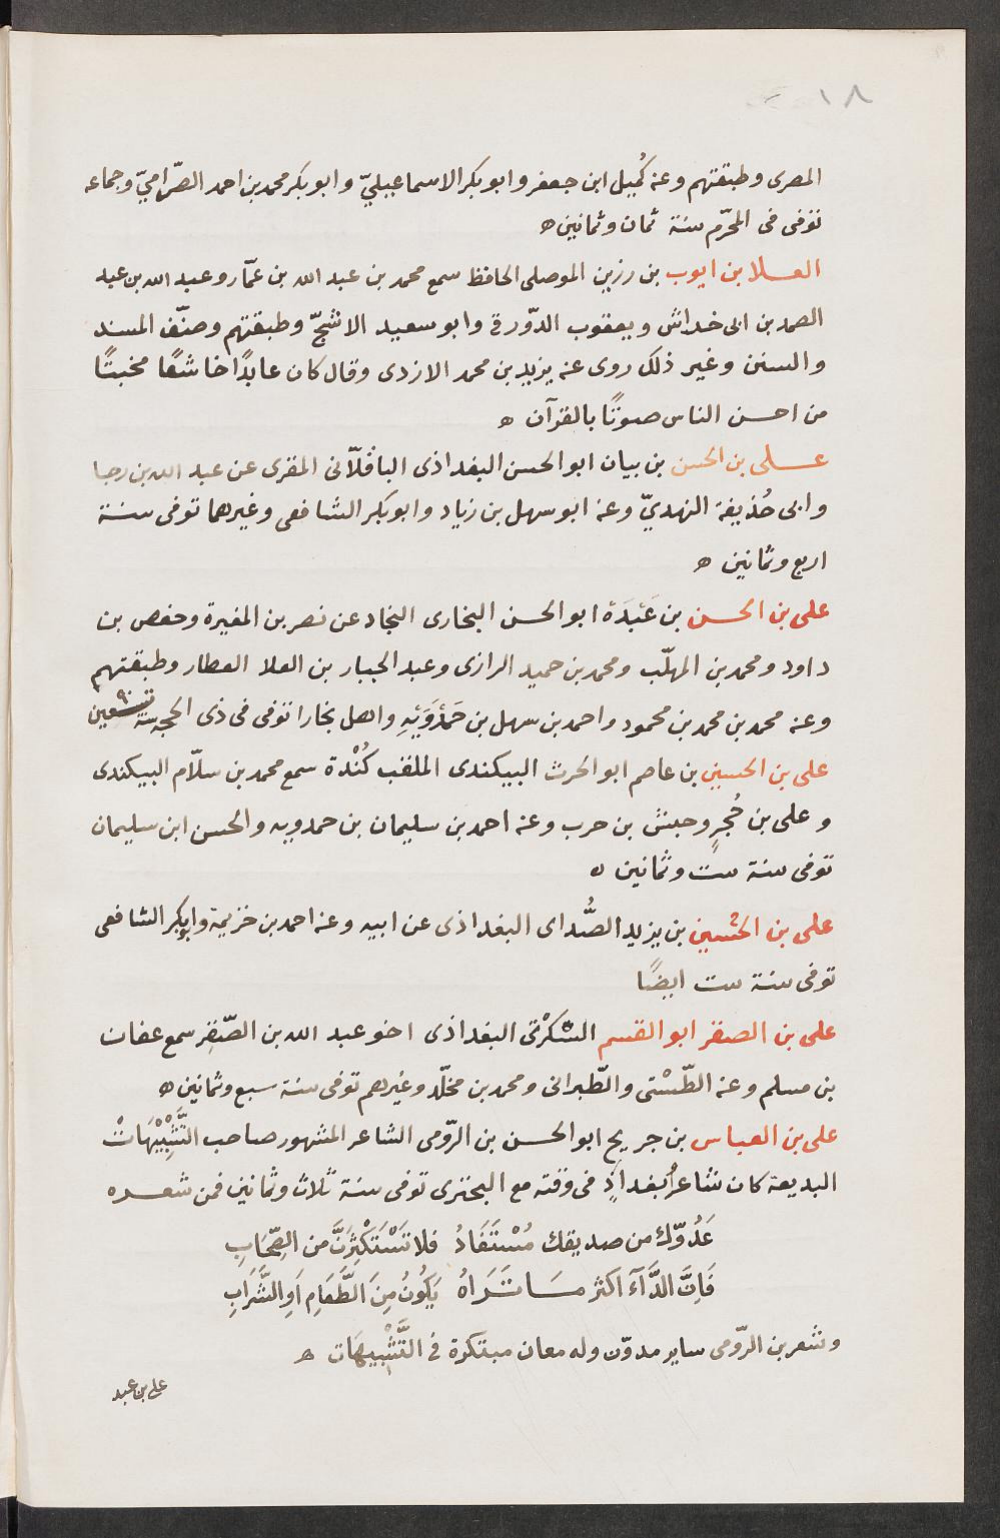 ١٨
المصرى وطبقتهم وعنه كُميل ابن جعفر وابو بكر الاسماعيليّ وابو بكر محمد بن احمد الصّرّاميّ وجماعه
توفى فى المحرّم سنة ثمان وثمانين ه
العلا بن ايوب بن رزين الموصلى الحافظ سمع محمد بن عبد الله بن عمّار وعبد الله بن عبد
الصمد بن ابى خداش ويعقوب الدّورقى وابو سعيد الاشجّ وطبقتهم وصنّف المسند
والسنن وغير ذلك روى عنه يزيد بن محمد الازدى وقال كان عابدًا خاشعًا مخبتًا
من احسن الناس صوتًا بالقرآن ه
على بن الحسن بن بيان ابو الحسن البغداذى الباقلّانى المقرى عن عبد الله بن رجا
وابى حُذيفة النهديّ وعنه ابو سهل بن زياد وابو بكر الشافعى وغيرهما توفى سنة
اربع وثمانين ه
على بن الحسن بن عَبْدَة ابو الحسن البخارى النجاد عن نصر بن المغيرة وحفص بن
داود ومحمد بن المهلّب ومحمد بن حميد الرازى وعبد الجبار بن العلا العطار وطبقتهم
وعنه محمد بن محمد بن محمود واحمد بن سهل بن حَمْدَوَيْهِ واهل بخارا توفى فى ذى الحجه سنة تسعين ٩٠
على بن الحسين بن عاصم ابو الحرث البيكندى الملقب كُنْدة سمع محمد بن سلّام البيكندى
وعلى بن حُجرٍ وحبش بن حرب وعنه احمد بن سليمان بن حمدويه والحسن ابن سليمان
توفى سنة ست وثمانين ه
على بن الحُسين بن يزيد الصُّداى البغداذى عن ابيه وعنه احمد بن خزيمة وابو بكر الشافعى
توفى سنة ست ايضًا
على بن الصقر ابو القسم السّكرْتى البغداذى اخو عبد الله بن الصّقر سمع عفان
بن مسلم وعنه الطّسْتى والطّبرانى ومحمد بن مخلّد وغيرهم توفى سنة سبع وثمانين ه
على بن العباس بن جريج ابو الحسن بن الرّومى الشاعر المشهور صاحب التَّشْبِيْهَاتْ
البديعة كان شاعرُ بغدادٍ فى وقته مع البحترى توفى سنة ثلاث وثمانين فمن شعره
عَدُوّك من صديقك مُسْتَفَادُ فلا تَسْتَكْثِرَنَّ من الصِّحَابِ
فَاِنَّ الدَّآءَ اكثر مَا تَرَاهُ يَكُونُ مِنَ الطَّعَامِ اَوِ الشَّرَابِ
وشعر بن الرّومى ساير مدوّن وله معان مبتكرة فى التَّشْبِيهَات ه
على بن عبد